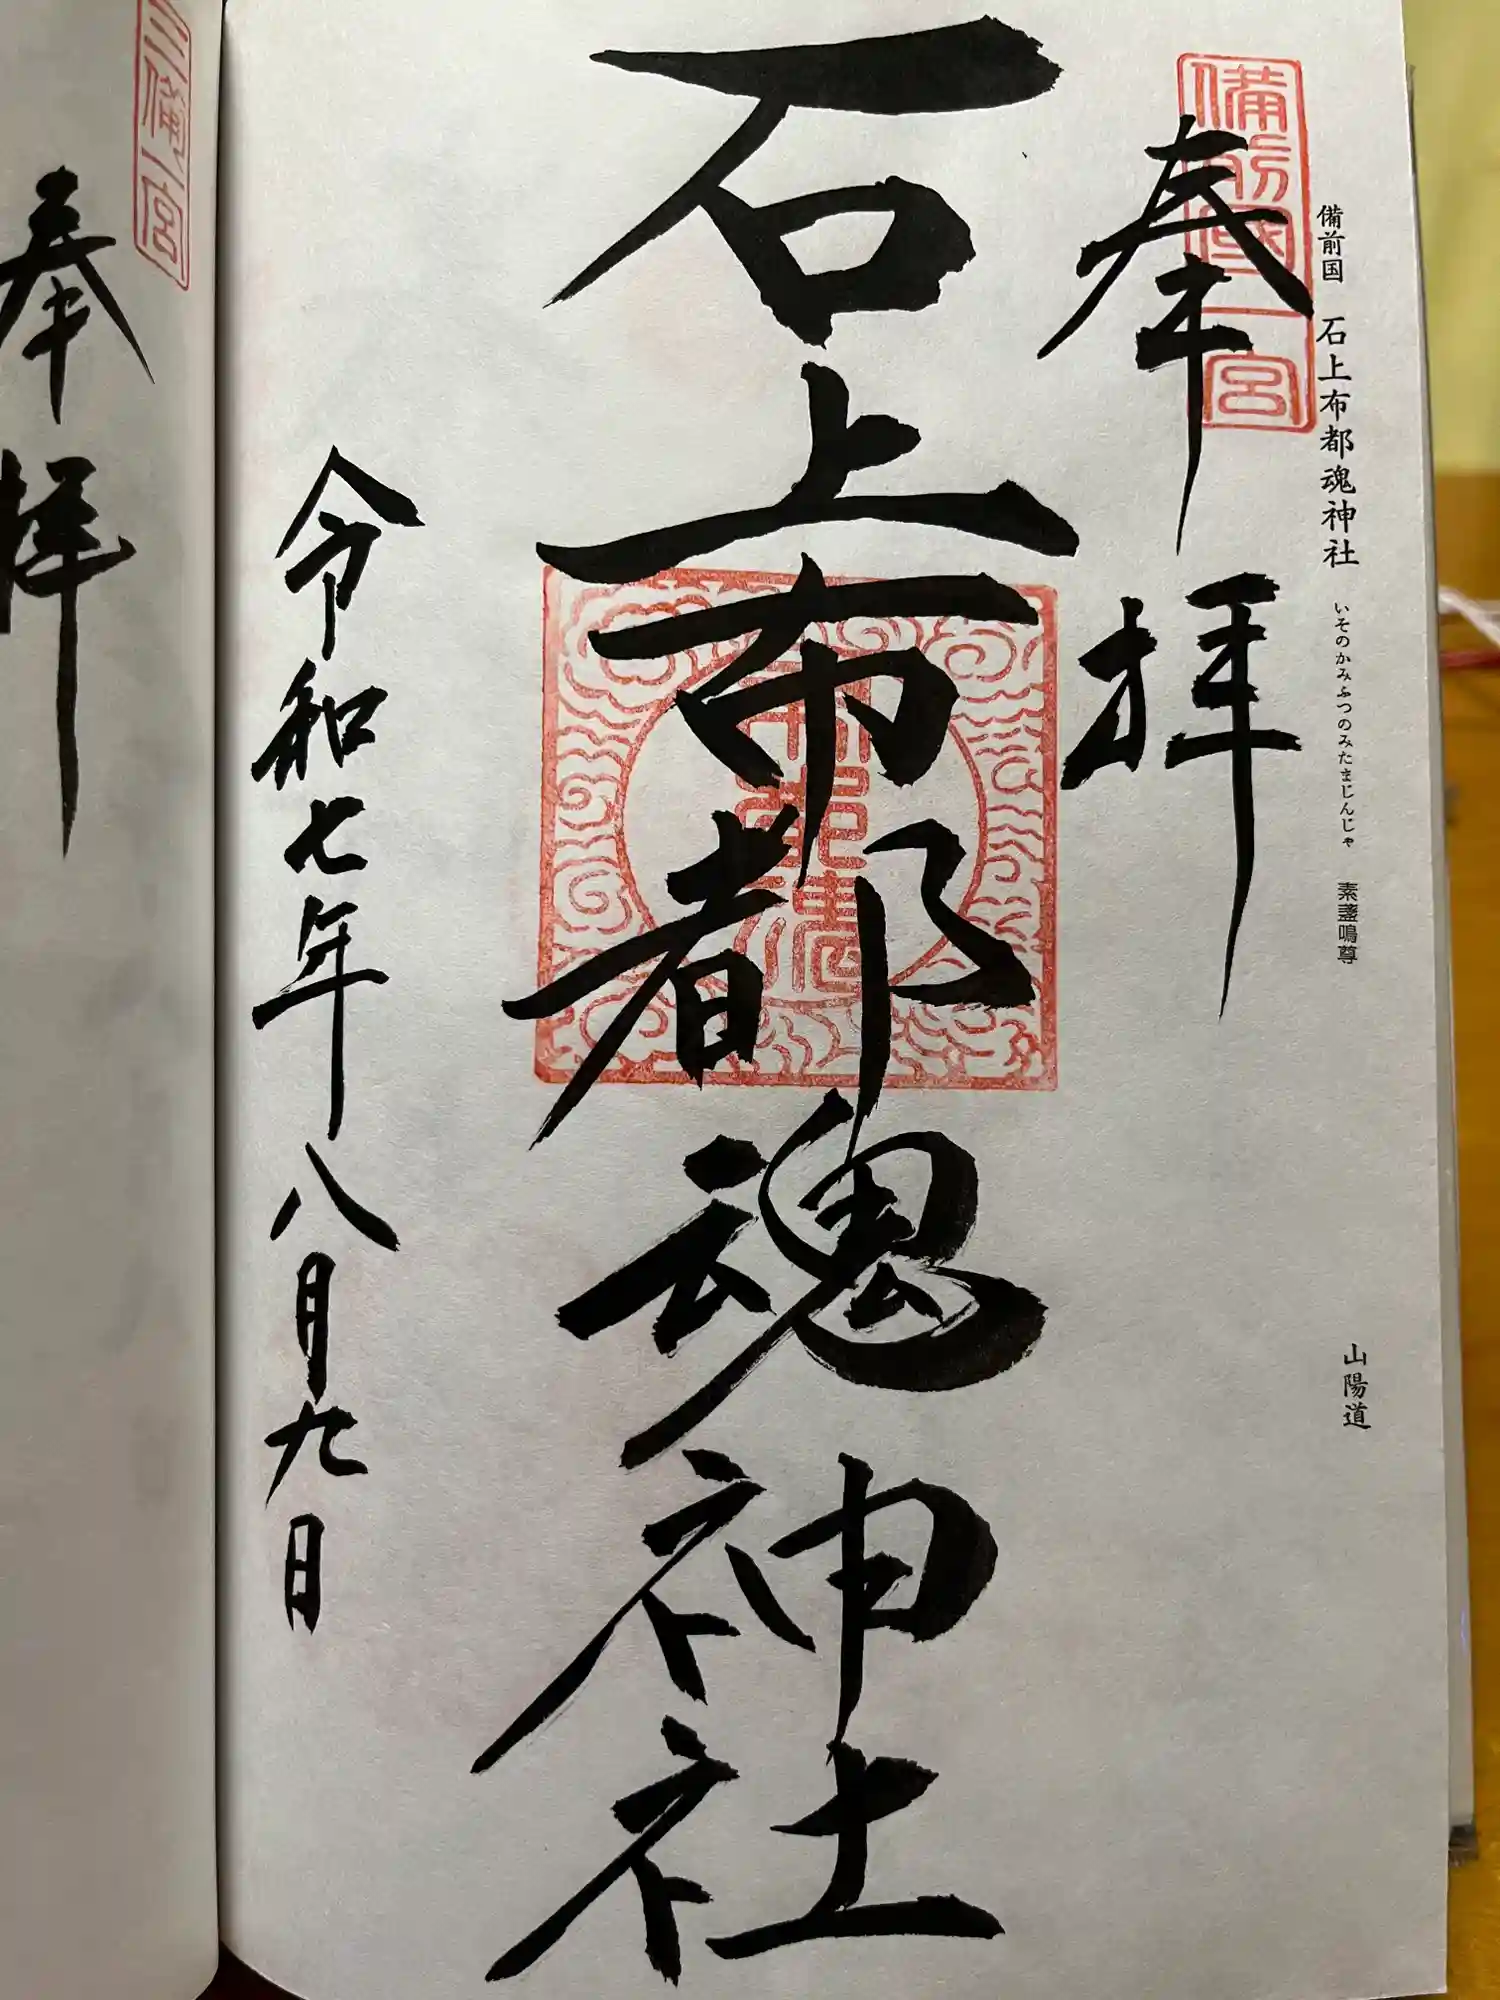 備前国 石上布都魂神社 いそのかみふつのみたまじんじゃ 素盞鳴尊 山陽道
備前國一宮
奉拝
石上布都魂神社
令和七年八月九日
三備一宮
奉拝